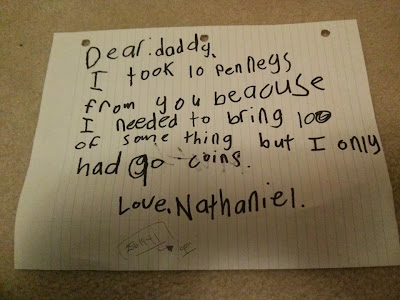 Dear:daddy,
I took 10 penneys
from you beaouse
I needed to bring 100
of some thing but I only
had 90 coins.
Love, Nathaniel.